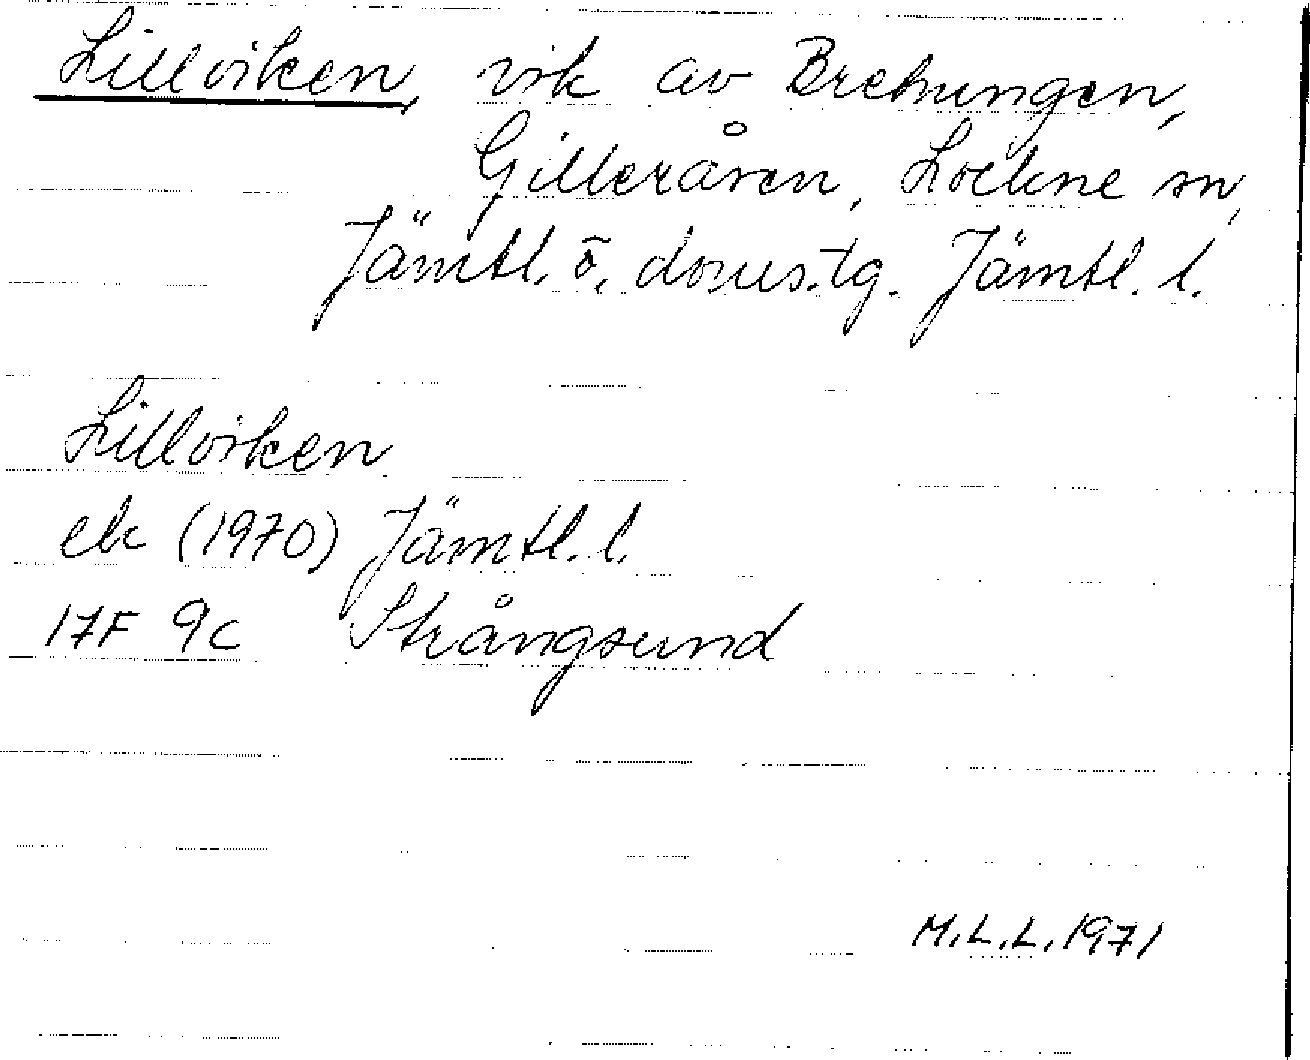 Lillviken, vik av Brehungen,
Gilleråsen, Lockne sn,
Jämtl. ö. doms.tg. Jämtl. l.
Lillviken
ek (1970) Jämtl. l.
17F 9c Strångsund
M.L.L. 1971